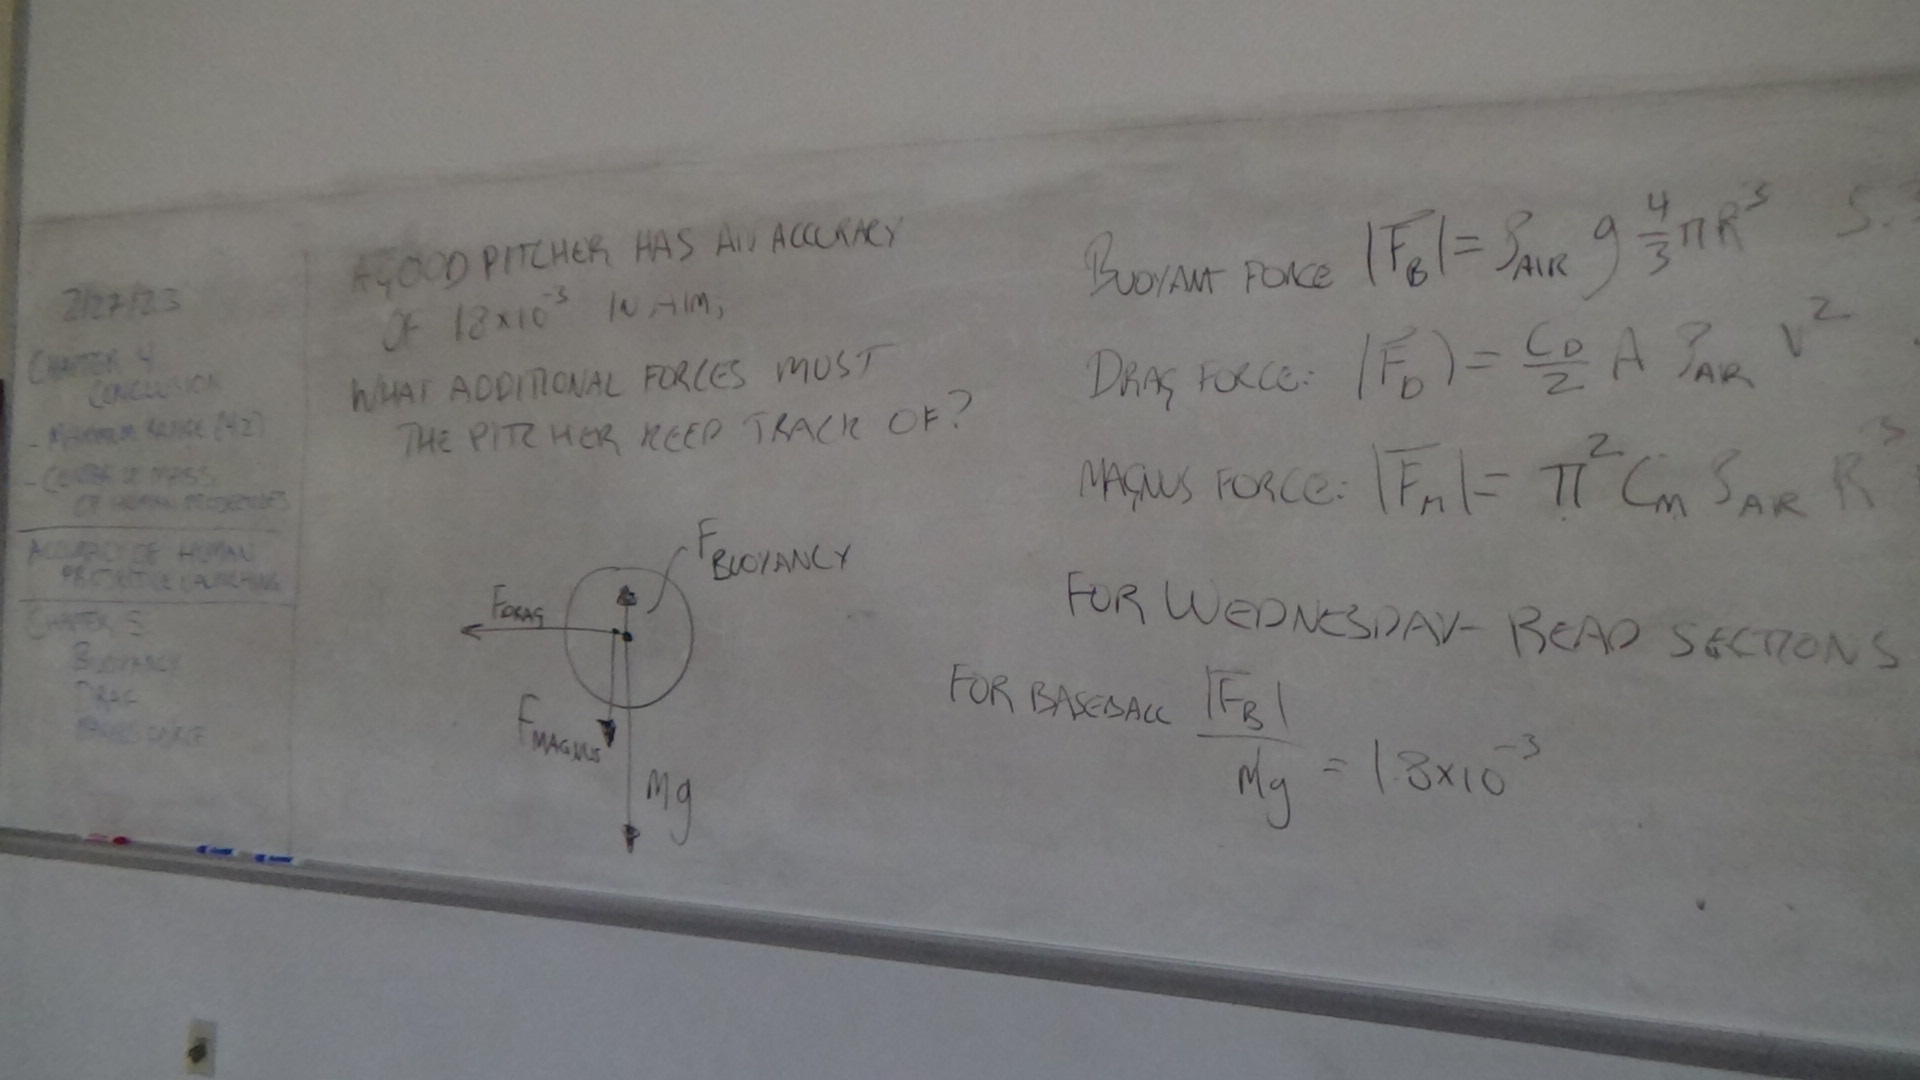 2/27/23
CHAPTER 4
CONCLUSION
- MAXIMUM RANGE (42)
- CENTER OF MASS
OF HUMAN
ACCURACY OF HUMAN
PROJECTILE LAUNCHING
CHAPTER 5
BUOYANCY
DRAG
MAGNUS FORCE
A GOOD PITCHER HAS AN ACCURACY
OF 18x10⁻³ IN AIM,
WHAT ADDITIONAL FORCES MUST
THE PITCHER KEEP TRACK OF?
F BUOYANCY
F DRAG
F MAGNUS
Mg
BUOYANT FORCE |F_B| = ρ_AIR g 4/3 πR³
DRAG FORCE: |F_D| = C_D/2 A ρ_AIR v²
MAGNUS FORCE: |F_M| = π² C_M ρ_AIR R³
FOR WEDNESDAY- READ SECTIONS
FOR BASEBALL |F_B| / Mg = 1.8x10⁻³